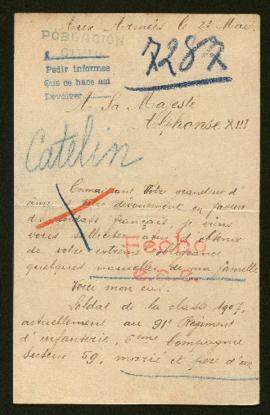 Aux Armées le 28 Mai
POBLACION
CIVIL
Pedir informes
Que ce hace aqui
Devolver
7287
A Sa Majesté
Alphonse XIII
Catelin
Connaissant Votre grandeur d'
âme votre dévouement en faveur
des soldats français je viens
vous solliciter afin d'obtenir
de votre extrême obligeance
quelques nouvelles de ma famille
Fecho
Voici mon cas.
Soldat de la classe 1907,
actuellement au 91e Régiment
d'infanterie, 6ème Compagnie
Secteur 59, marié et père d'un